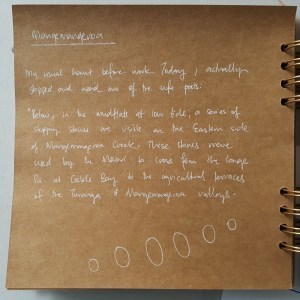 Mangemangeroa
My usual haunt before work. Today, I actually
stopped and read one of the info posts:
"Below, in the mudflats at low tide, a series of
stepping stones are visible on the Eastern side
of Mangemangeroa Creek. These stones were
used by the Maori to cross from the large
Pa at Cockle Bay to the agricultural terraces
of the Turanga & Mangemangeroa valleys."